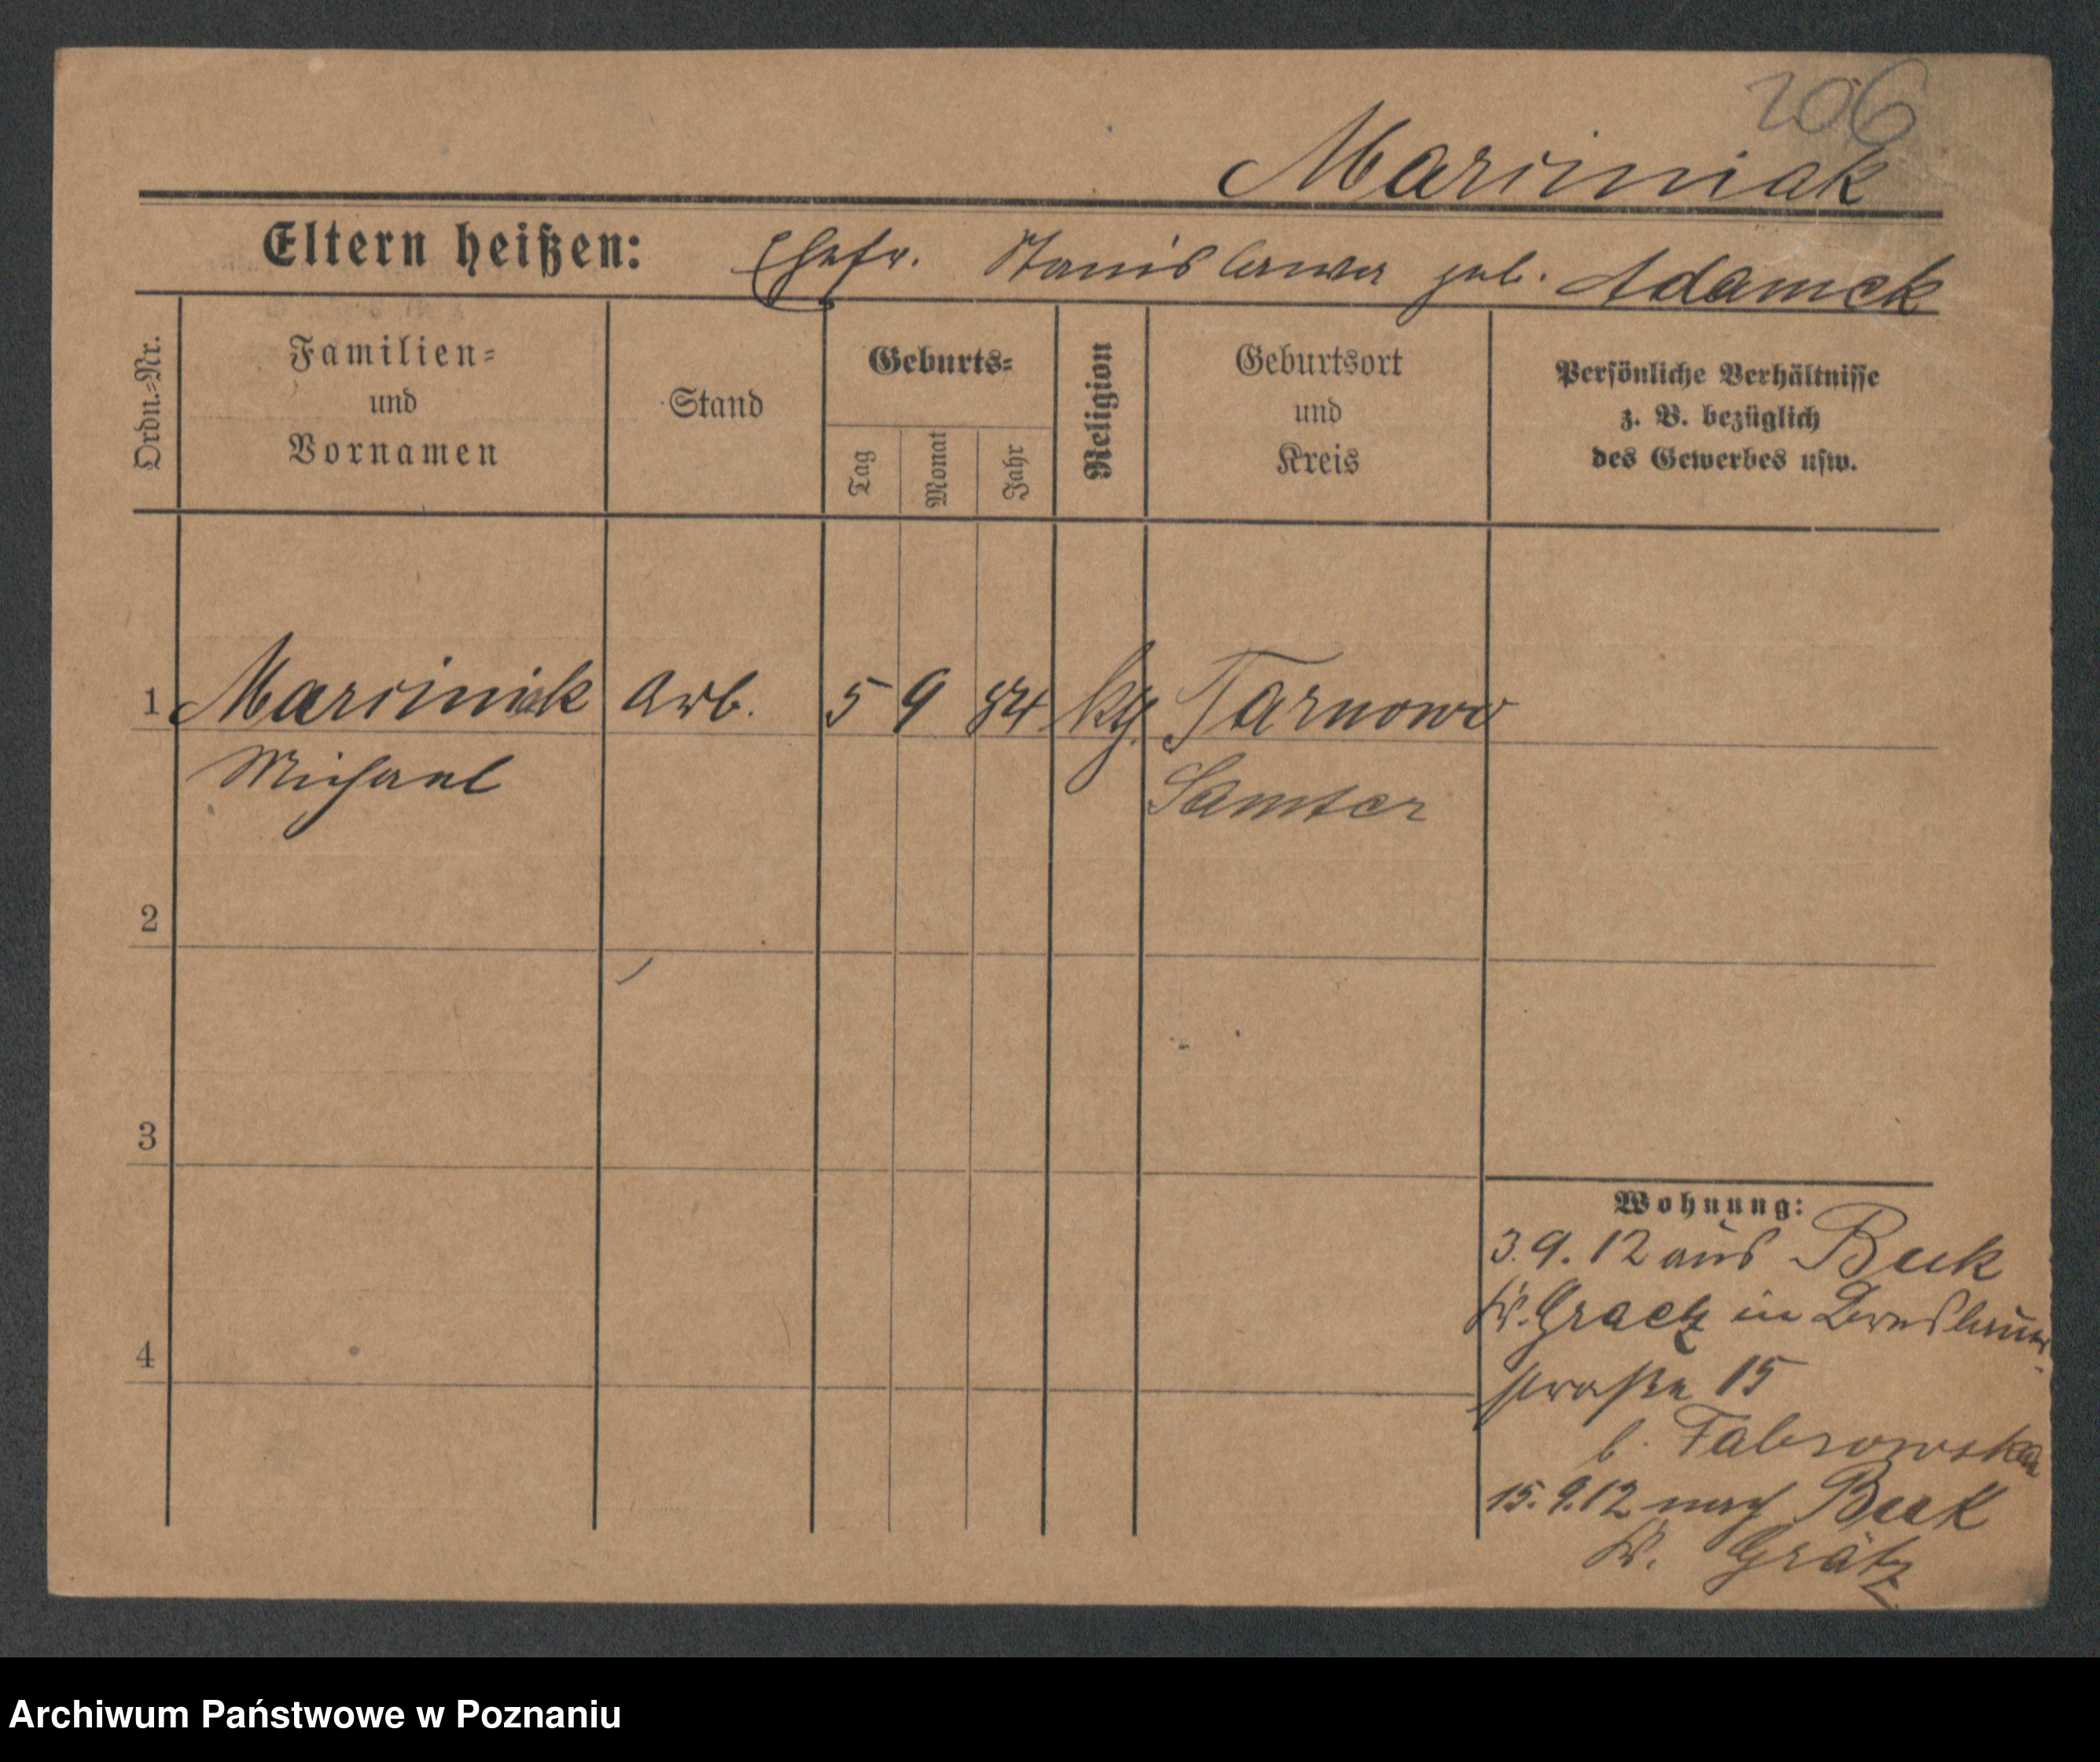 206
Marciniak
Eltern heißen: Ehefr. Stanislawa geb. Adamek
Ordn.=Nr.
Familien=
und
Vornamen
Stand
Geburts=
Tag
Monat
Jahr
Religion
Geburtsort
und
Kreis
Persönliche Verhältnisse
z. B. bezüglich
des Gewerbes usw.
1 Marciniak Arb. 5 9 84 kg. Tarnowo
Michael Samter
2
3
4
Wohnung:
3.9.12 aus Buk
Kr. Graetz in Breslauer-
straße 15
b.
15.9.12 nach Buk
Kr. Grätz
Archiwum Państwowe w Poznaniu